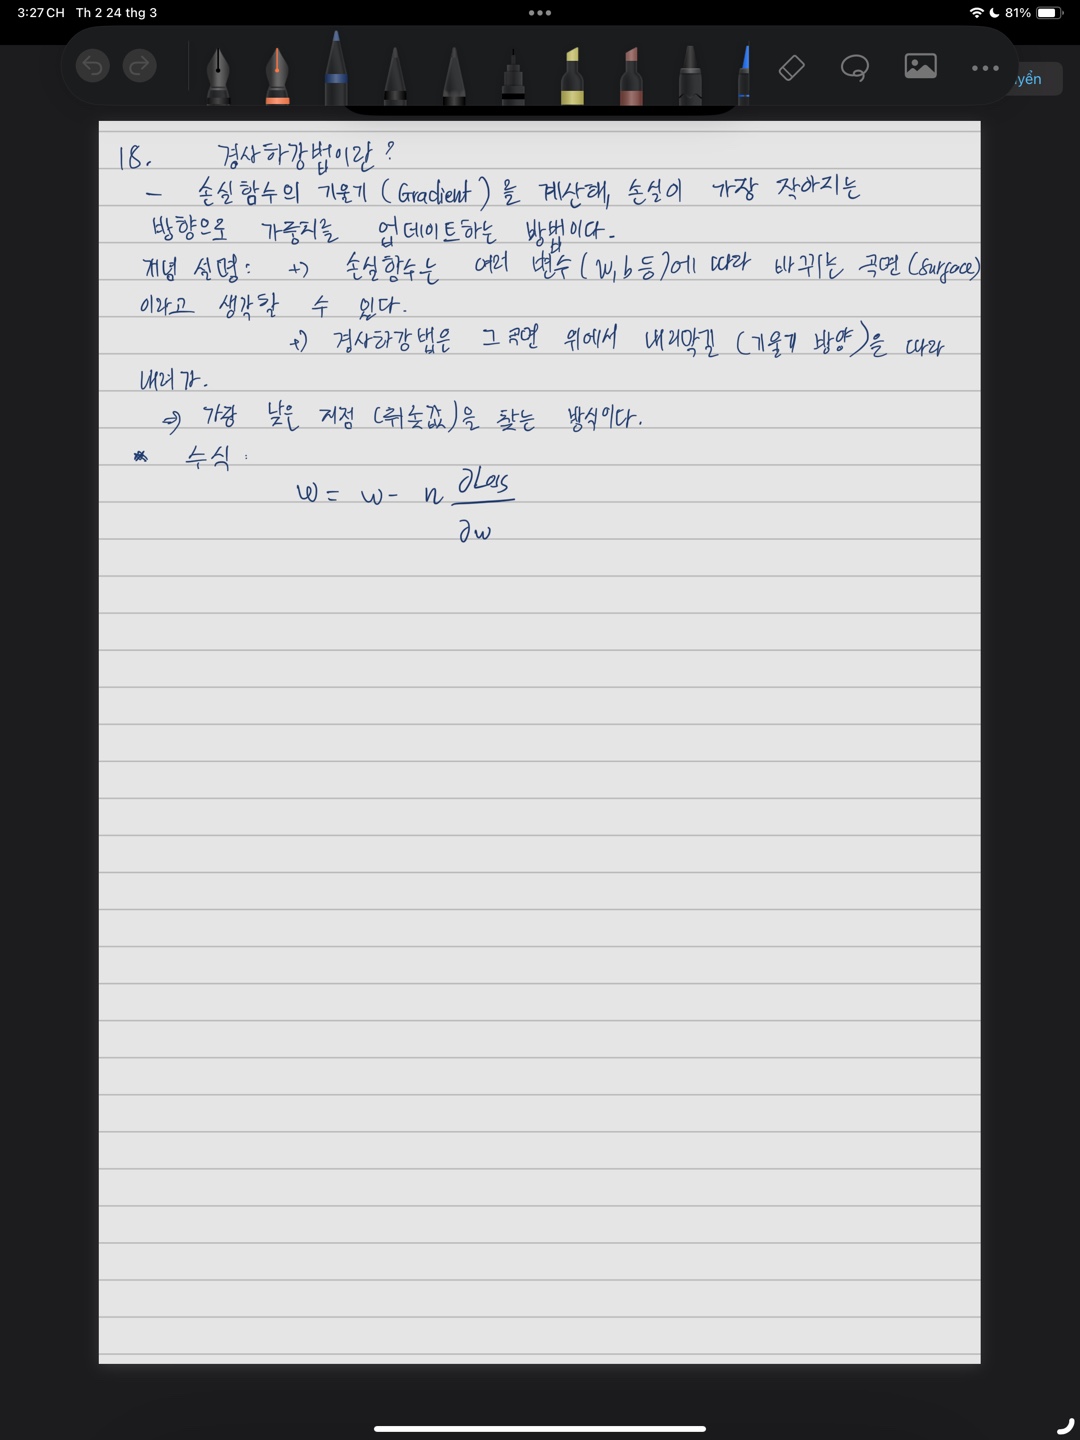 3:27 CH Th 2 24 thg 3 81%
yển
18. 경사하강법이란?
– 손실함수의 기울기 (Gradient)을 계산해, 손실이 가장 작아지는
방향으로 가중치를 업데이트하는 방법이다.
개념 설명: +) 손실함수는 여러 변수 (w, b 등)에 따라 바뀌는 곡면 (surface)
이라고 생각할 수 있다.
+) 경사하강법은 그 곡면 위에서 내리막길 (기울기 방향)을 따라
내려가.
⇒ 가장 낮은 지점 (최솟값)을 찾는 방식이다.
* 수식:
w = w - n ∂Loss
∂w